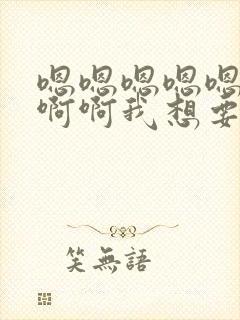 嗯嗯嗯嗯嗯
啊啊我想要
笑無語